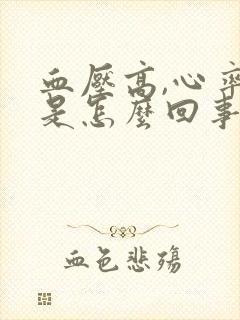 血壓高,心率
是怎麼回事
血色悲殤